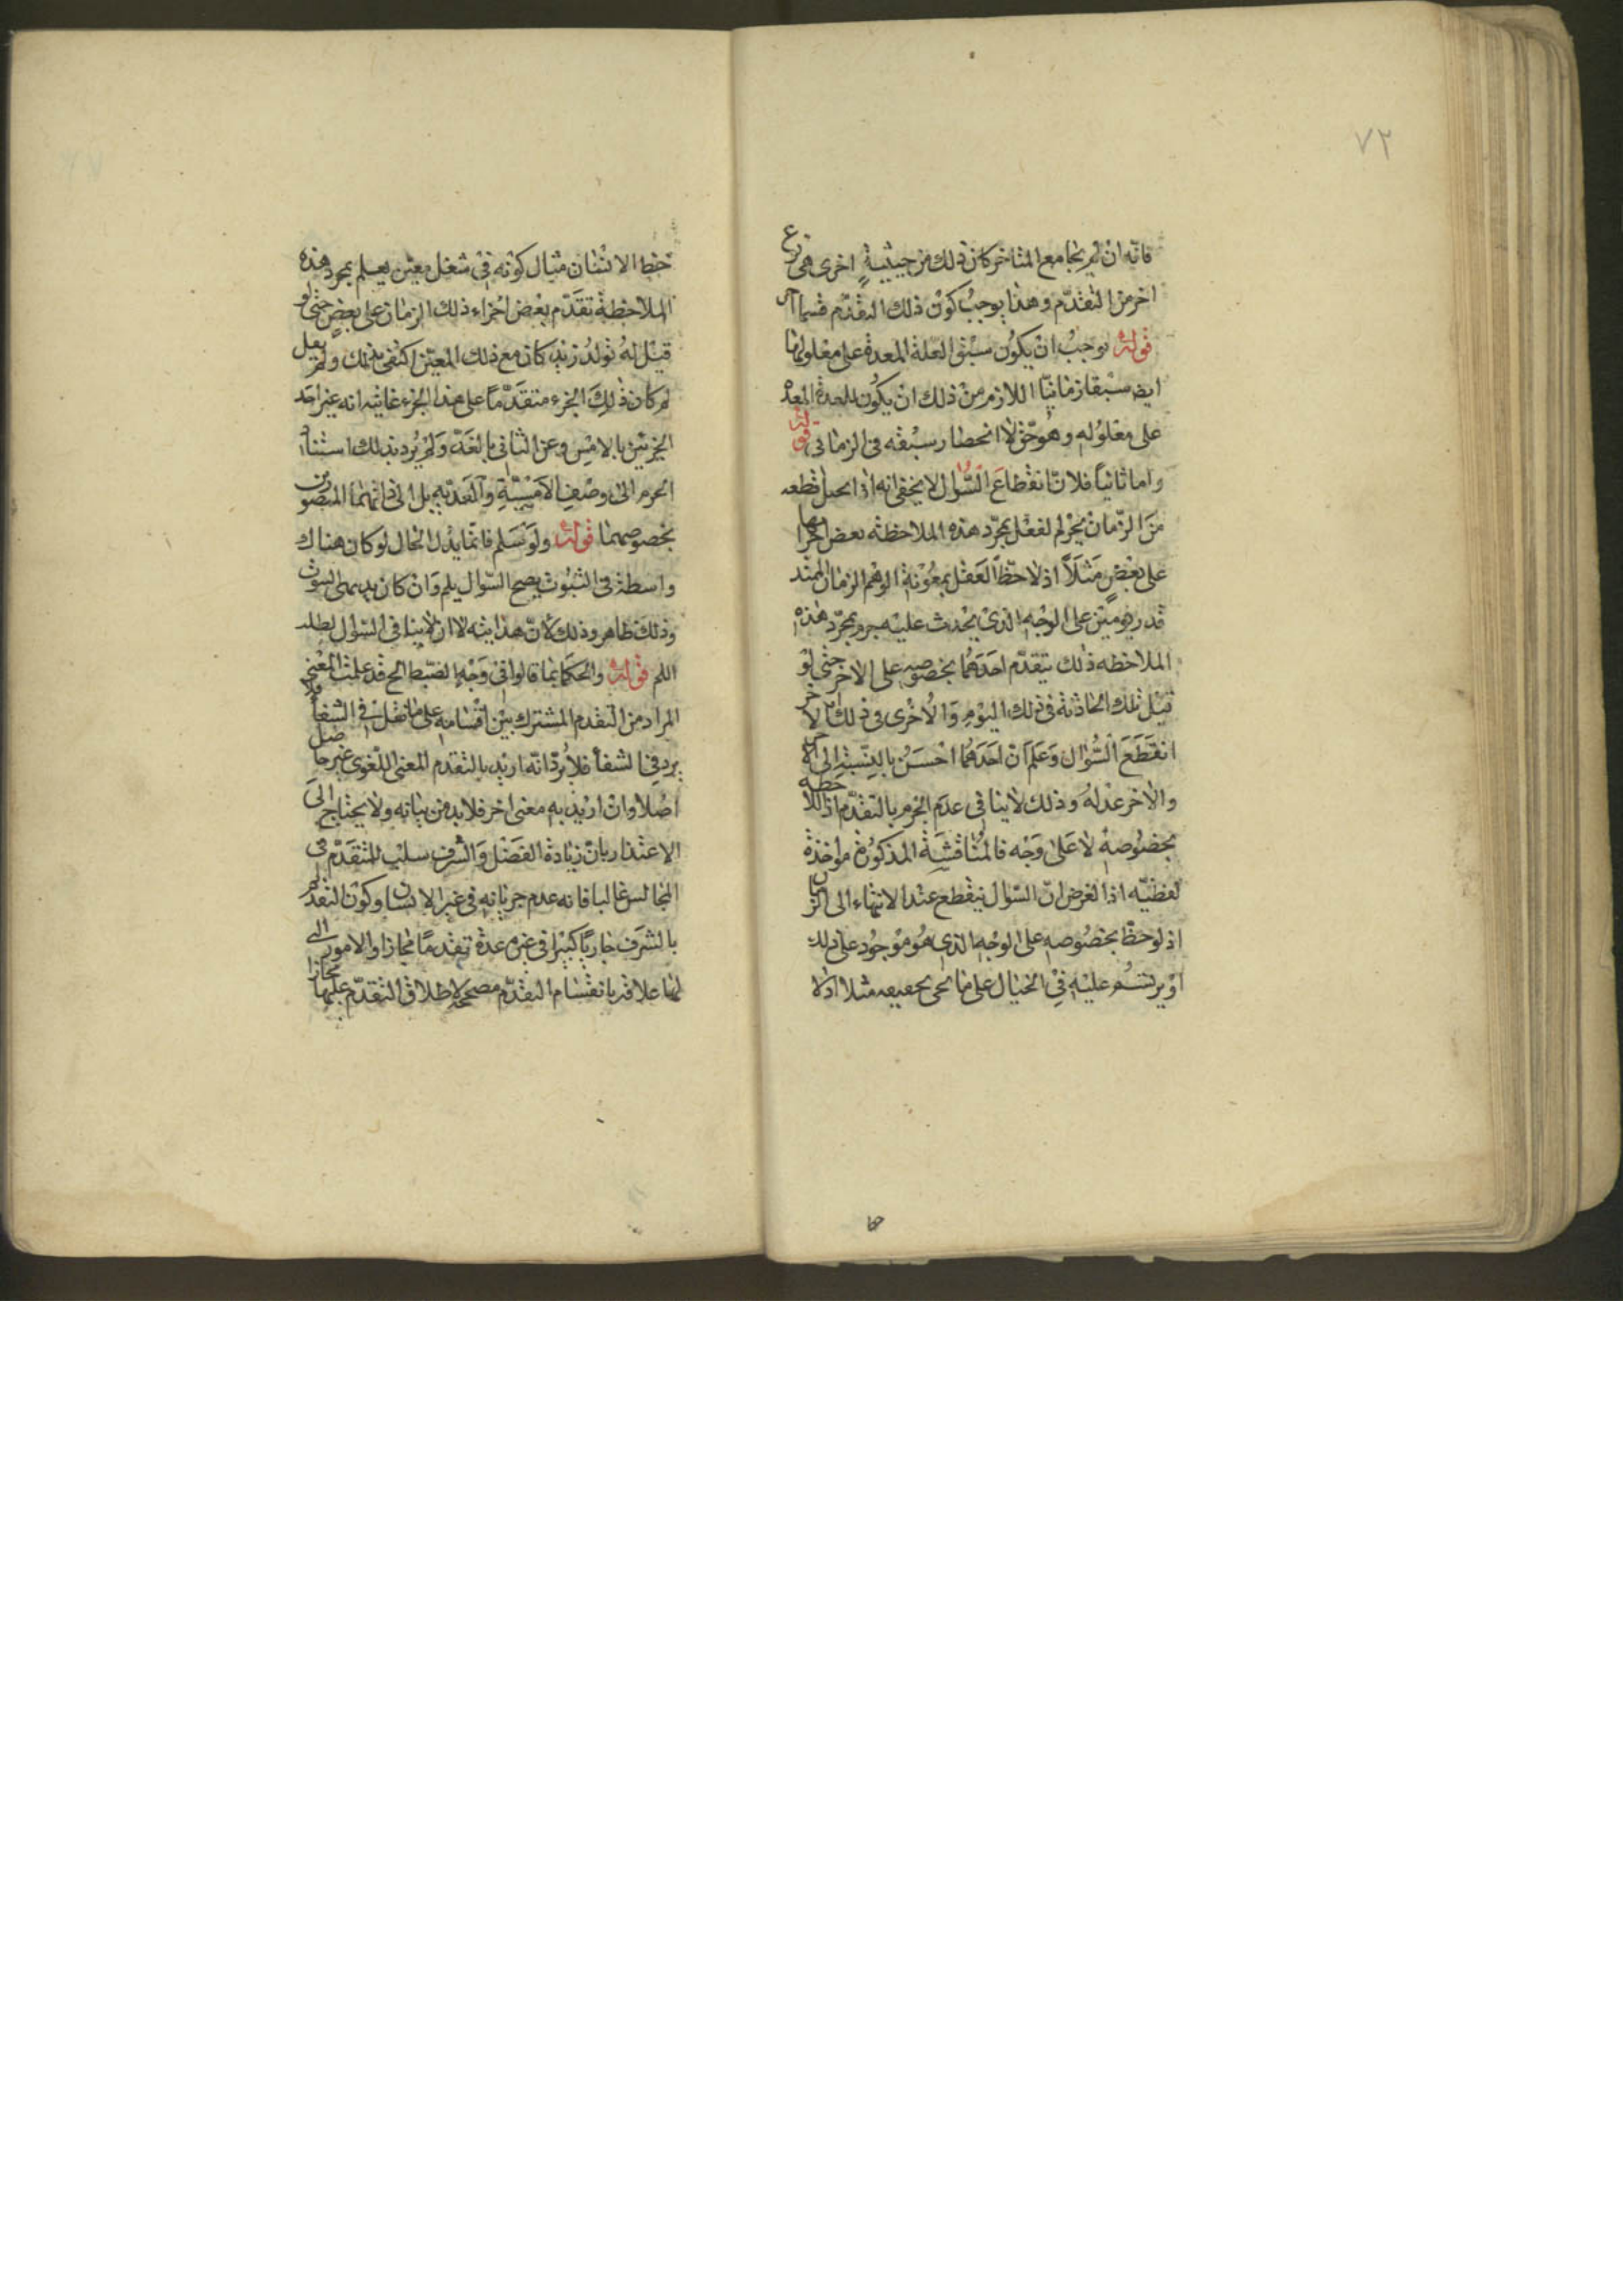 ٧٢
فانه ان لم يجامع المتاخر كان ذلك من حيثية اخرى هى نوع
اخر من التقدم وهذا يوجب كون ذلك التقدم قسما اخر
قوله يوجب ان يكون سبق العلة المعدة على معلولها
ايض سبقا زمانيا اللازم من ذلك ان يكون للعدة المعدة
على معلوله وهو حق لا انحصار سبقه فى الزمانى قوله
واما ثانيا فلان انقطاع السؤال لا يخفى انه اذا قطعه
من الزمان بمجرد هذه الملاحظه بعض اجزائها
على بعض مثلا اذ لاحظ العقل بمعونة الوهم الزمان الممتد
قدر يومين على الوجه الذى يحدث عليه بمجرد هذه
الملاحظه ذلك بتقدم احدهما بخصوصه على الاخر حتى لو
قيل تلك الحادثة فى ذلك اليوم والاخرى فى ذلك الاخر
انقطع السؤال وعلم ان احدهما احسن بالنسبة الى
والاخر وذلك لا ينافى عدم الجزم بالتقدم اذا لاحظه
بخصوصه لا على وجه فالمناقشة المذكورة مواخذة
لفظيه اذا الغرض ان السؤال ينقطع عند الانتهاء الى الزمان
اذ لوحظ بخصوصه على الوجه الذى هو موجود على ذلك
او يرتسم عليه فى الخيال على ما مثلا اذ لا
حظ الانسان مثبال كونه فى شغل معين يعلم بمجرد هذه
الملاحظة تقدم بعض اجزاء ذلك الزمان على بعض حتى لو
قيل له تولد زيد كان مع ذلك المعين اكتفى بذلك ولم يقل
لم كان ذلك الجزء متقدما على هذا الجزء غايته انه عبر احد
الجزئين بالامس وعن الثانى بالغد ولم يرد بذلك استناد
الجزم الى وصف الامسية والغدية بل الى ذاتهما المتصورين
بخصوصهما قوله ولو سلم فانما يدل الحال لو كان هناك
واسطة فى الثبوت يصح السؤال بلم وان كان الثبوت
وذلك ظاهر وذلك لان هذا لا ينافى السؤال لطلب
اللم قوله والحكما بما قالوا فى وجه الضبط الخ قد علمت المعنى
المراد من التقدم المشترك بين اقسامه على ما نقل فى الشفا فلا
يرد فى الشفا فلا يرد انه اريد بالتقدم المعنى اللغوى غير حاصل
اصلا وان اريد به معنى اخر فلا بد من بيانه ولا يحتاج الى
الاعتذار بان زيادة الفضل والشرف للتقدم فى
المجالس غالبا فانه عدم جريانه فى غير الانسان وكون التقدم
بالشرف جاريا كثيرا فى غيره عدة تقدما مجازا والامور التى
لها علاقه باقسام التقدم مصححة لاطلاق التقدم عليها مجازا